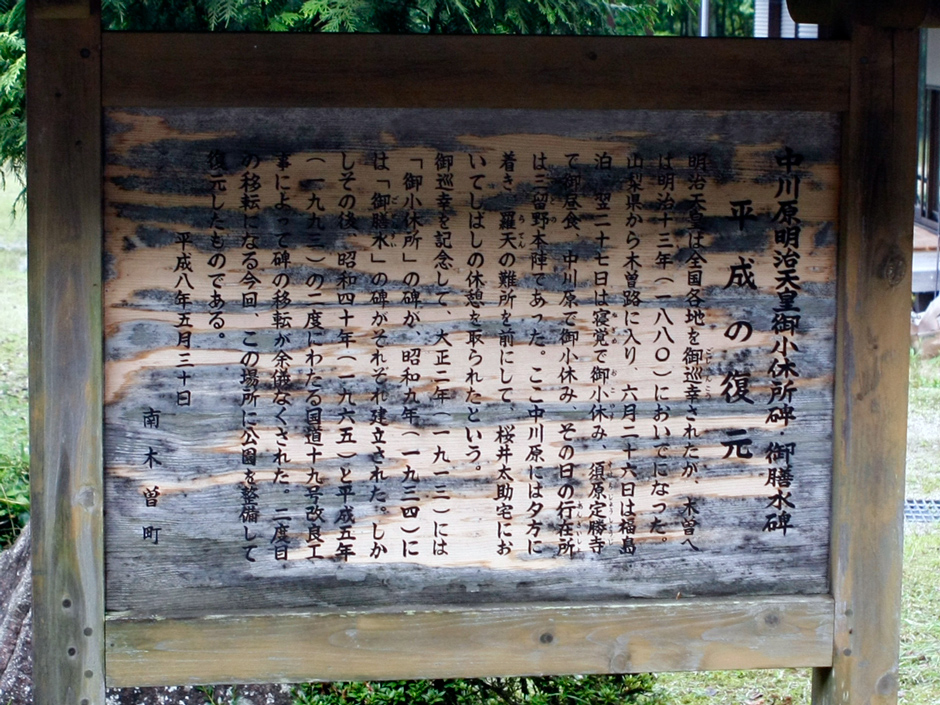 中川原明治天皇御小休所碑・御膳水碑
平成の復元
明治天皇は全国各地を御巡幸されたが、木曽へ
は明治十三年(一八八〇)においでになった。
山梨県から木曽路に入り、六月二十六日は福島
泊 翌二十七日は寝覚で御小休み 須原定勝寺
で御昼食、中川原で御小休み、その日の行在所
は三留野本陣であった。ここ中川原には夕方に
着き、羅天の難所を前にして、桜井太助宅にお
いてしばしの休憩を取られたという。
御巡幸を記念して、大正二年(一九一三)には
「御小休所」の碑が、昭和九年(一九三四)に
は「御膳水」の碑がそれぞれ建立された。しか
しその後、昭和四十年(一九六五)と平成五年
(一九九三)の二度にわたる国道十九号改良工
事によって碑の移転が余儀なくされた。二度目
の移転になる今回、この場所に公園を整備して
復元したものである。
平成八年五月三十日
南木曽町